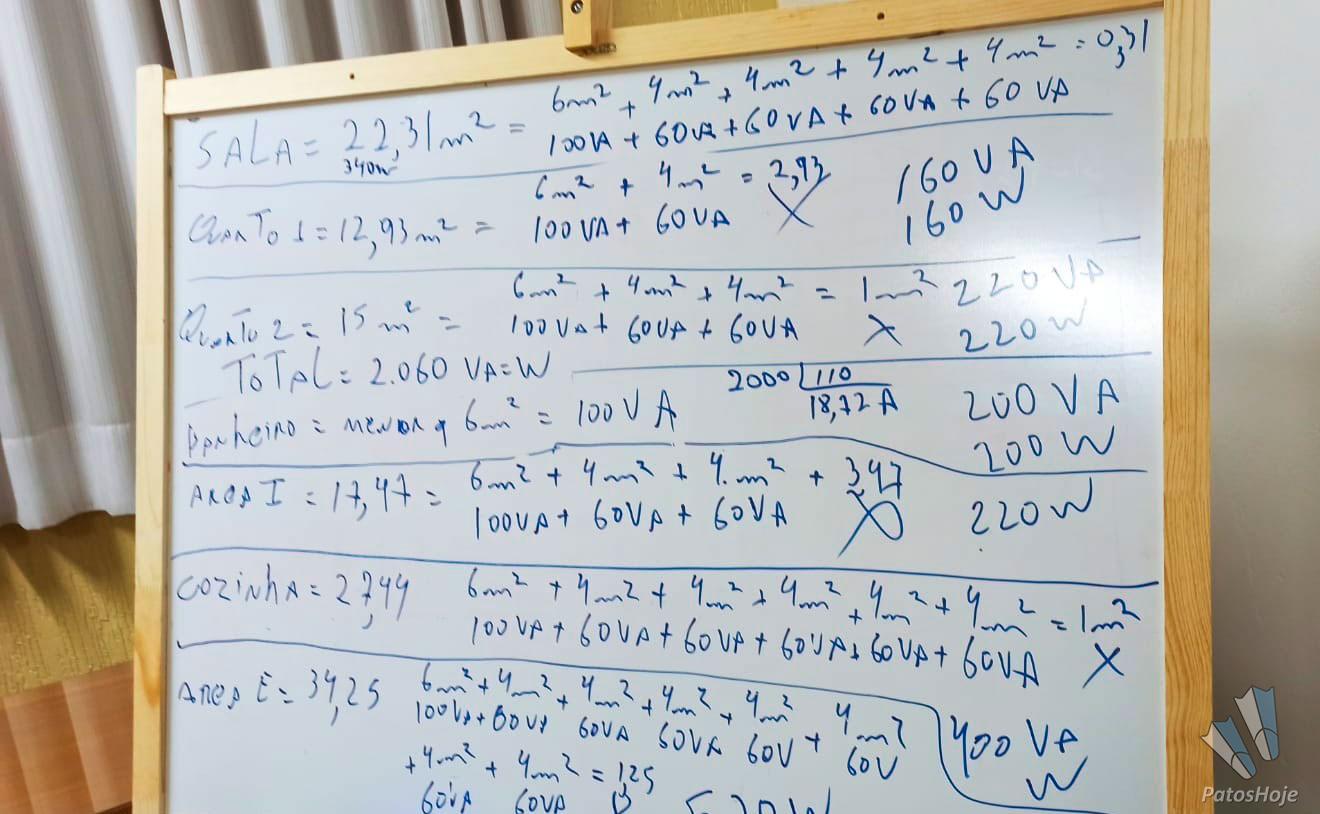 SALA = 22,31m² = 6m² + 4m² + 4m² + 4m² + 4m² = 0,31
340w 100VA + 60VA + 60VA + 60VA + 60 VA
QUARTO 1 = 12,93m² = 6m² + 4m² = 2,93 160 VA
100VA + 60VA X 160 W
QUARTO 2 = 15 m² = 6m² + 4m² + 4m² = 1m² 220 VA
100VA + 60VA + 60VA X 220 W
TOTAL = 2.060 VA=W 2000 110
18,72 A
BANHEIRO = MENOR q 6m² = 100 VA 200 VA
200 W
AREA I = 17,47 = 6m² + 4m² + 4.m² + 347
100VA + 60VA + 60VA X 220W
COZINHA = 27,44 6m² + 4m² + 4m² + 4m² + 4m² + 4m² = 1m²
100VA + 60VA + 60VA + 60VA + 60VA + 60VA X
AREA E = 34,25 6m² + 4m² + 4m² + 4m² + 4m² + 4m²
100VA + 60VA 60VA 60VA 60V 60V 400 VA
+ 4m² + 4m² = 125 W
60VA 60VA
PatosHoje